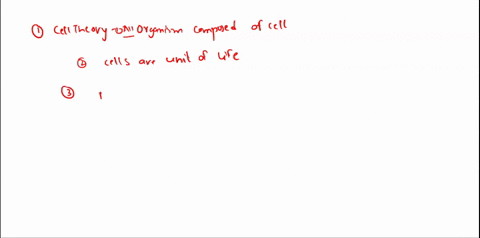 ① Cell Theory → ① All Organism composed of cell
② cells are unit of life
③